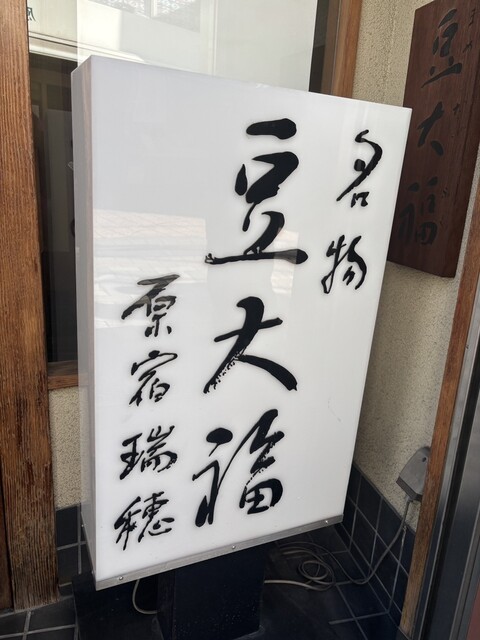 名物
豆大福
原宿瑞穂
豆大福